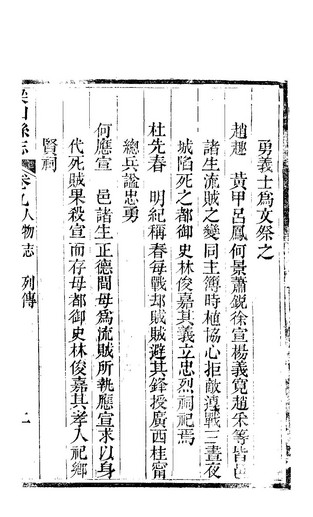 勇義士爲文祭之
趙趣　黃甲呂鳳何景蕭銳徐宣楊義寬趙釆等皆邑
諸生流賊之變同主簿時植協心拒敵遵戰三晝夜
城陷死之都御史林俊嘉其義立忠烈祠祀焉
杜先春　明紀稱春每戰却賊賊避其鋒授廣西桂甯
總兵謚忠勇
何應宣　邑諸生正德間母爲流賊所執應宣求以身
代死賊果殺宣而存母都御史林俊嘉其孝入祀鄉
賢祠
梁山縣志　卷九人物志　列傳　二